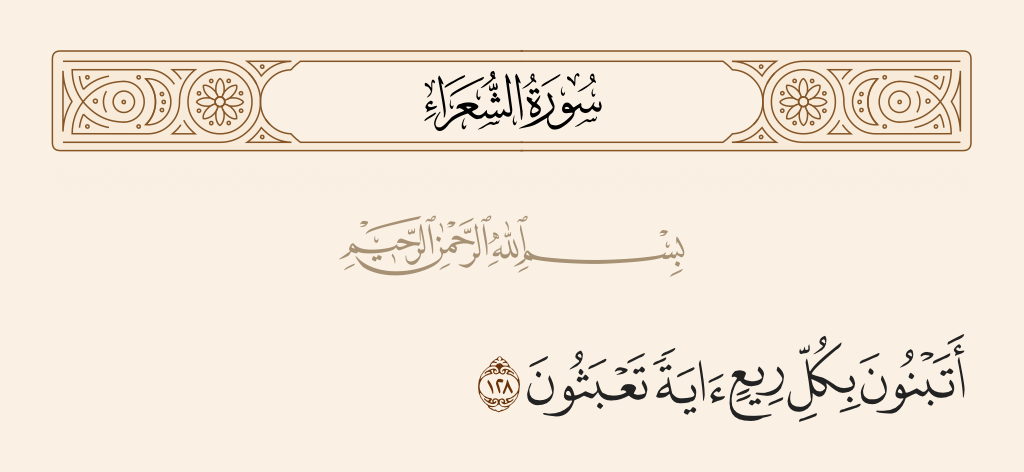 سُورَةُ الشُّعَرَاءِ
بِسْمِ ٱللَّهِ ٱلرَّحْمَٰنِ ٱلرَّحِيمِ
أَتَبْنُونَ بِكُلِّ رِيعٍ ءَايَةً تَعْبَثُونَ ١٢٨